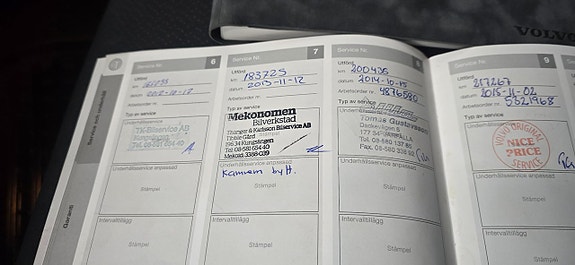 VOLVO
Service och underhåll
Garanti
Service Nr. 6
Utförd
km
datum
Arbetsorder nr.
Typ av service
TK Bilservice AB
Underhållsservice anpassad
Stämpel
Intervalltillägg
Stämpel
Service Nr. 7
Utförd
km 183725
datum 2013-11-12
Arbetsorder nr.
Typ av service
Mekonomen
Bilverkstad
Thunger & Karlsson Bilservice AB
Tibble Gård
196 34 Kungsängen
Tel 08-581 654 40
Underhållsservice anpassad
Kamrem bytt.
Stämpel
Intervalltillägg
Stämpel
Service Nr. 8
Utförd
km 200436
datum 2014-10-15
Arbetsorder nr. 4876580
Typ av service
Tomas Gustavsson
177 54
Tel. 08-580 137 85
Fax. 08-580 338 92
Underhållsservice anpassad
Stämpel
Intervalltillägg
Stämpel
Service Nr. 9
Utförd
km 217267
datum 2015-11-02
Arbetsorder nr. 5321968
Typ av service
VOLVO ORIGINAL
NICE
PRICE
SERVICE
Underhållsservice anpassad
Stämpel
Intervalltillägg
Stämpel